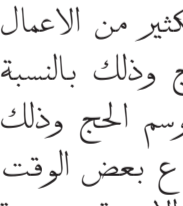 كثير من الاعمال
ج وذلك بالنسبة
وسم الحج وذلك
ع بعض الوقت